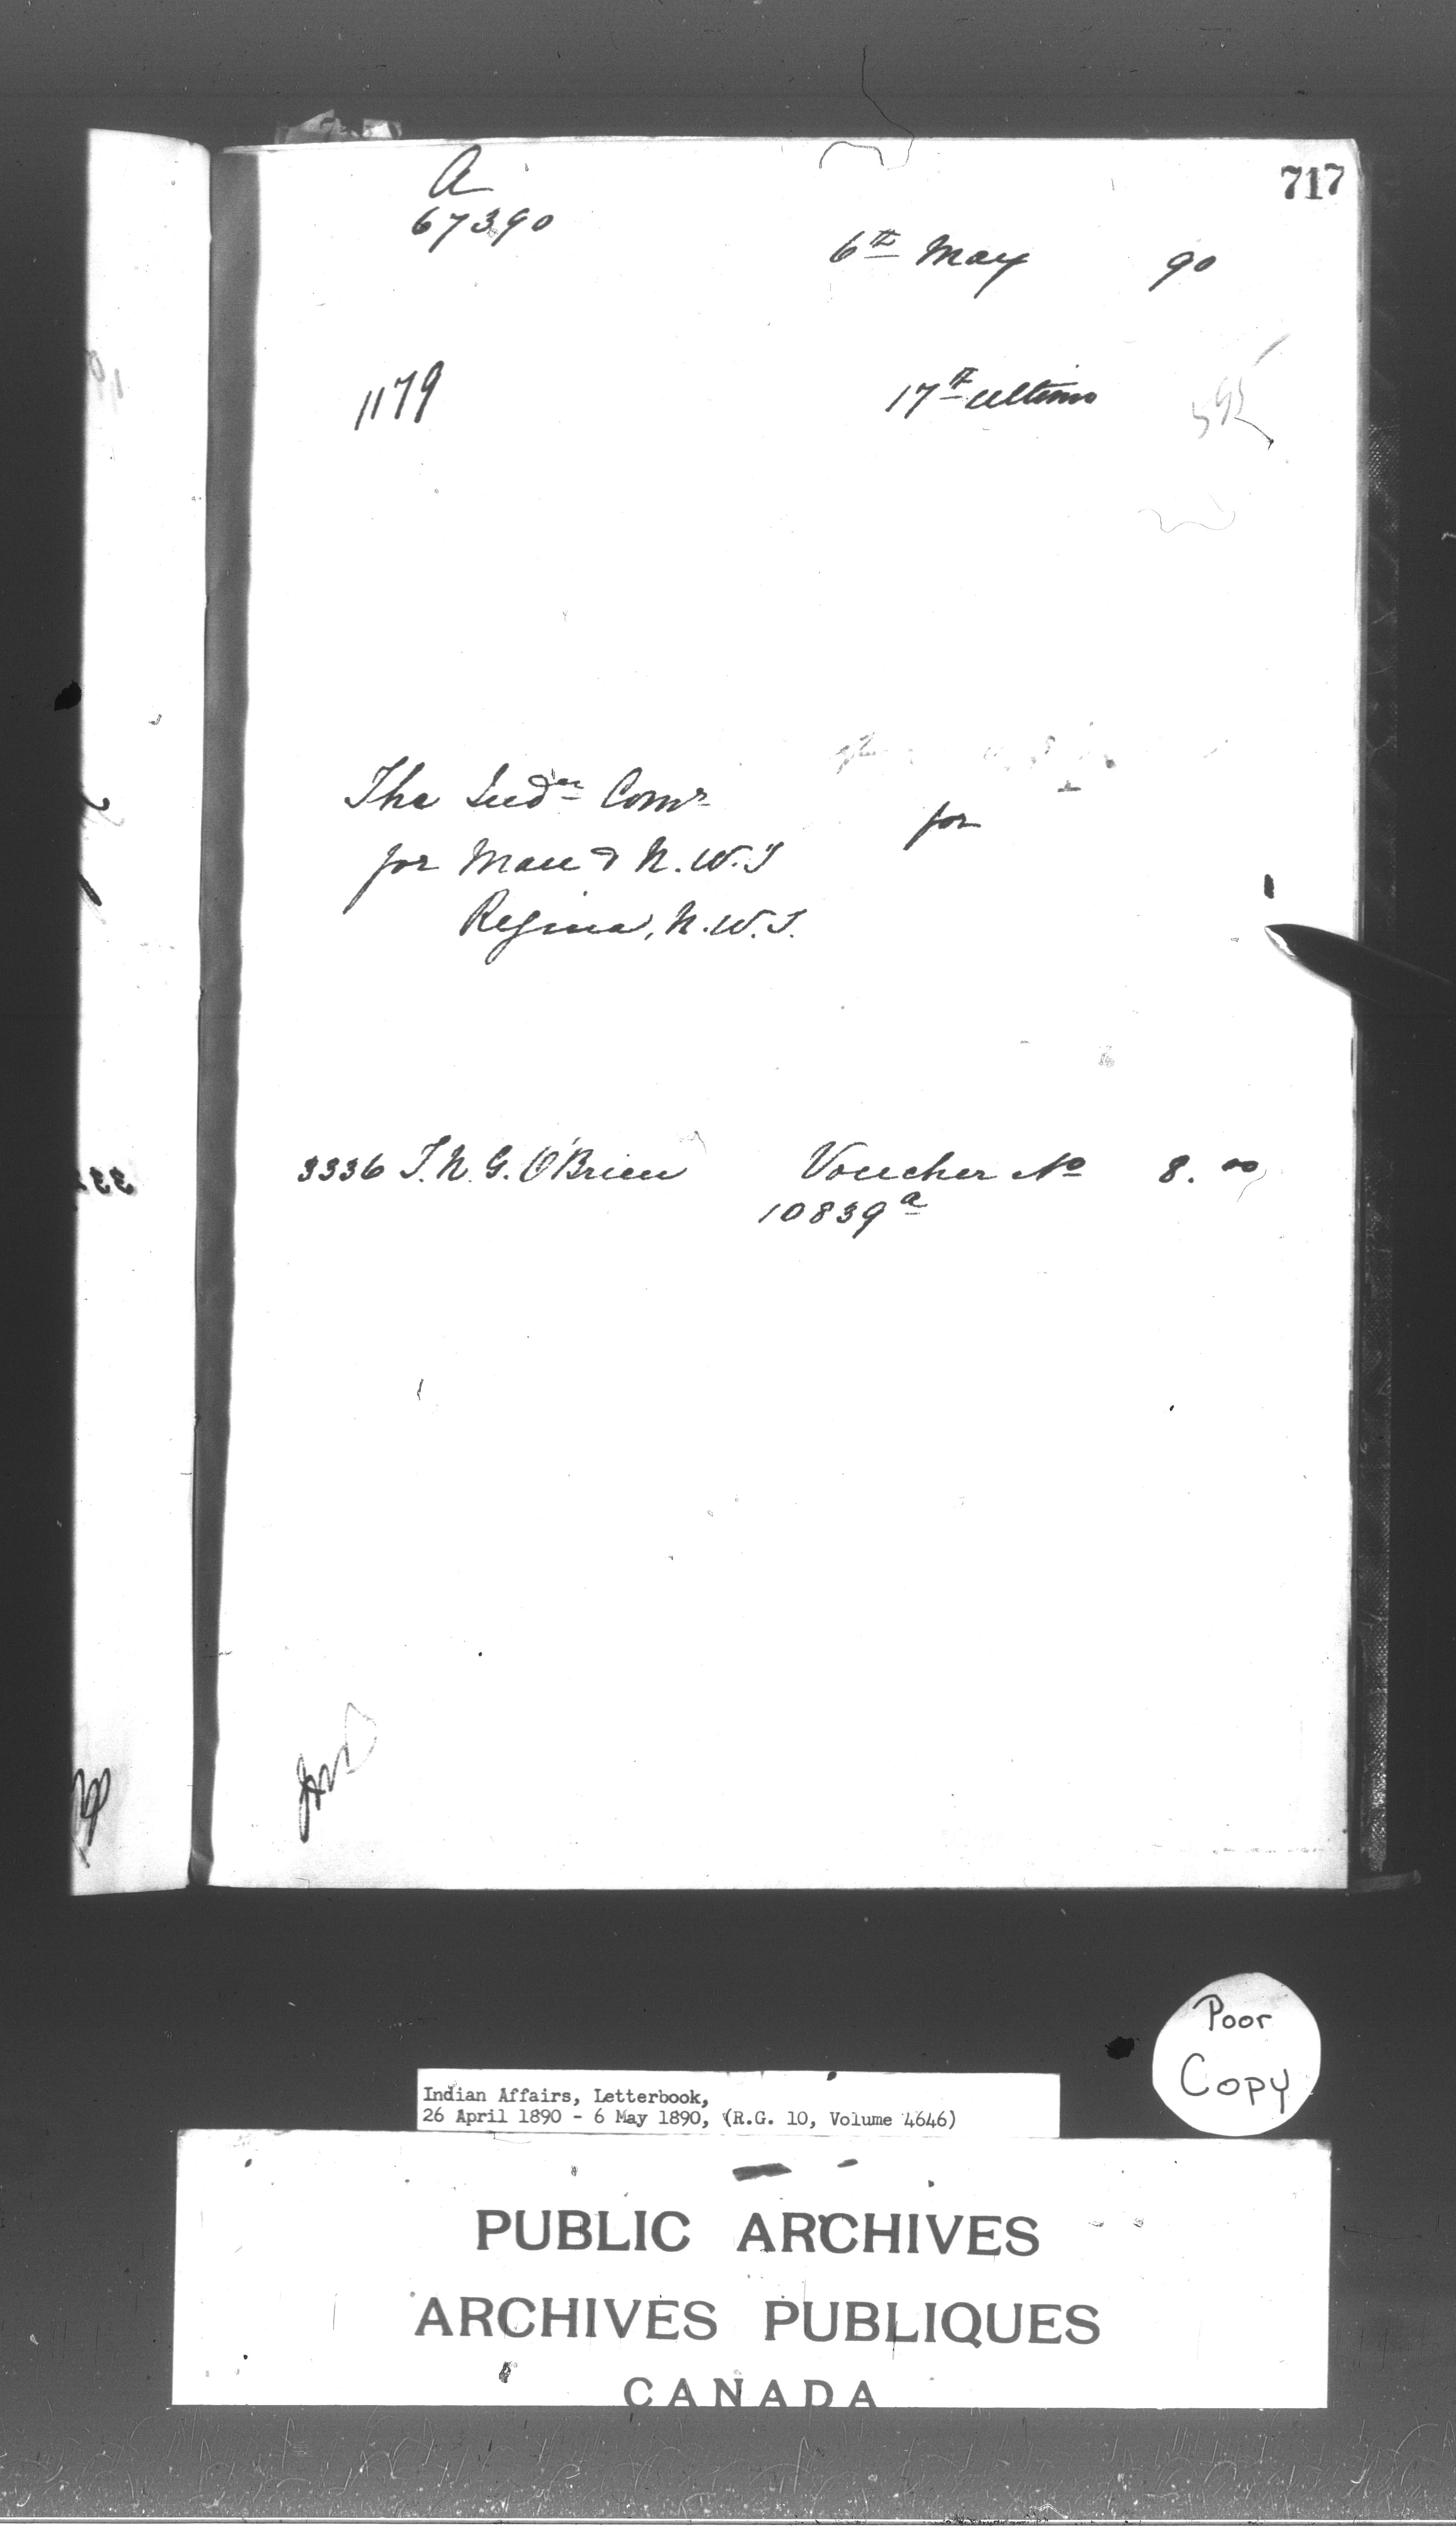 717
a
67390
6th May 90
1179
17th ultimo
The Indn Comr
for
for Man & N.W.T
Regina, N.W.T.
3336 T.N.G. O'Brien Voucher No 8.00
10839a
Poor
Copy
Indian Affairs, Letterbook,
26 April 1890 - 6 May 1890, (R.G. 10, Volume 4646)
PUBLIC ARCHIVES
ARCHIVES PUBLIQUES
CANADA